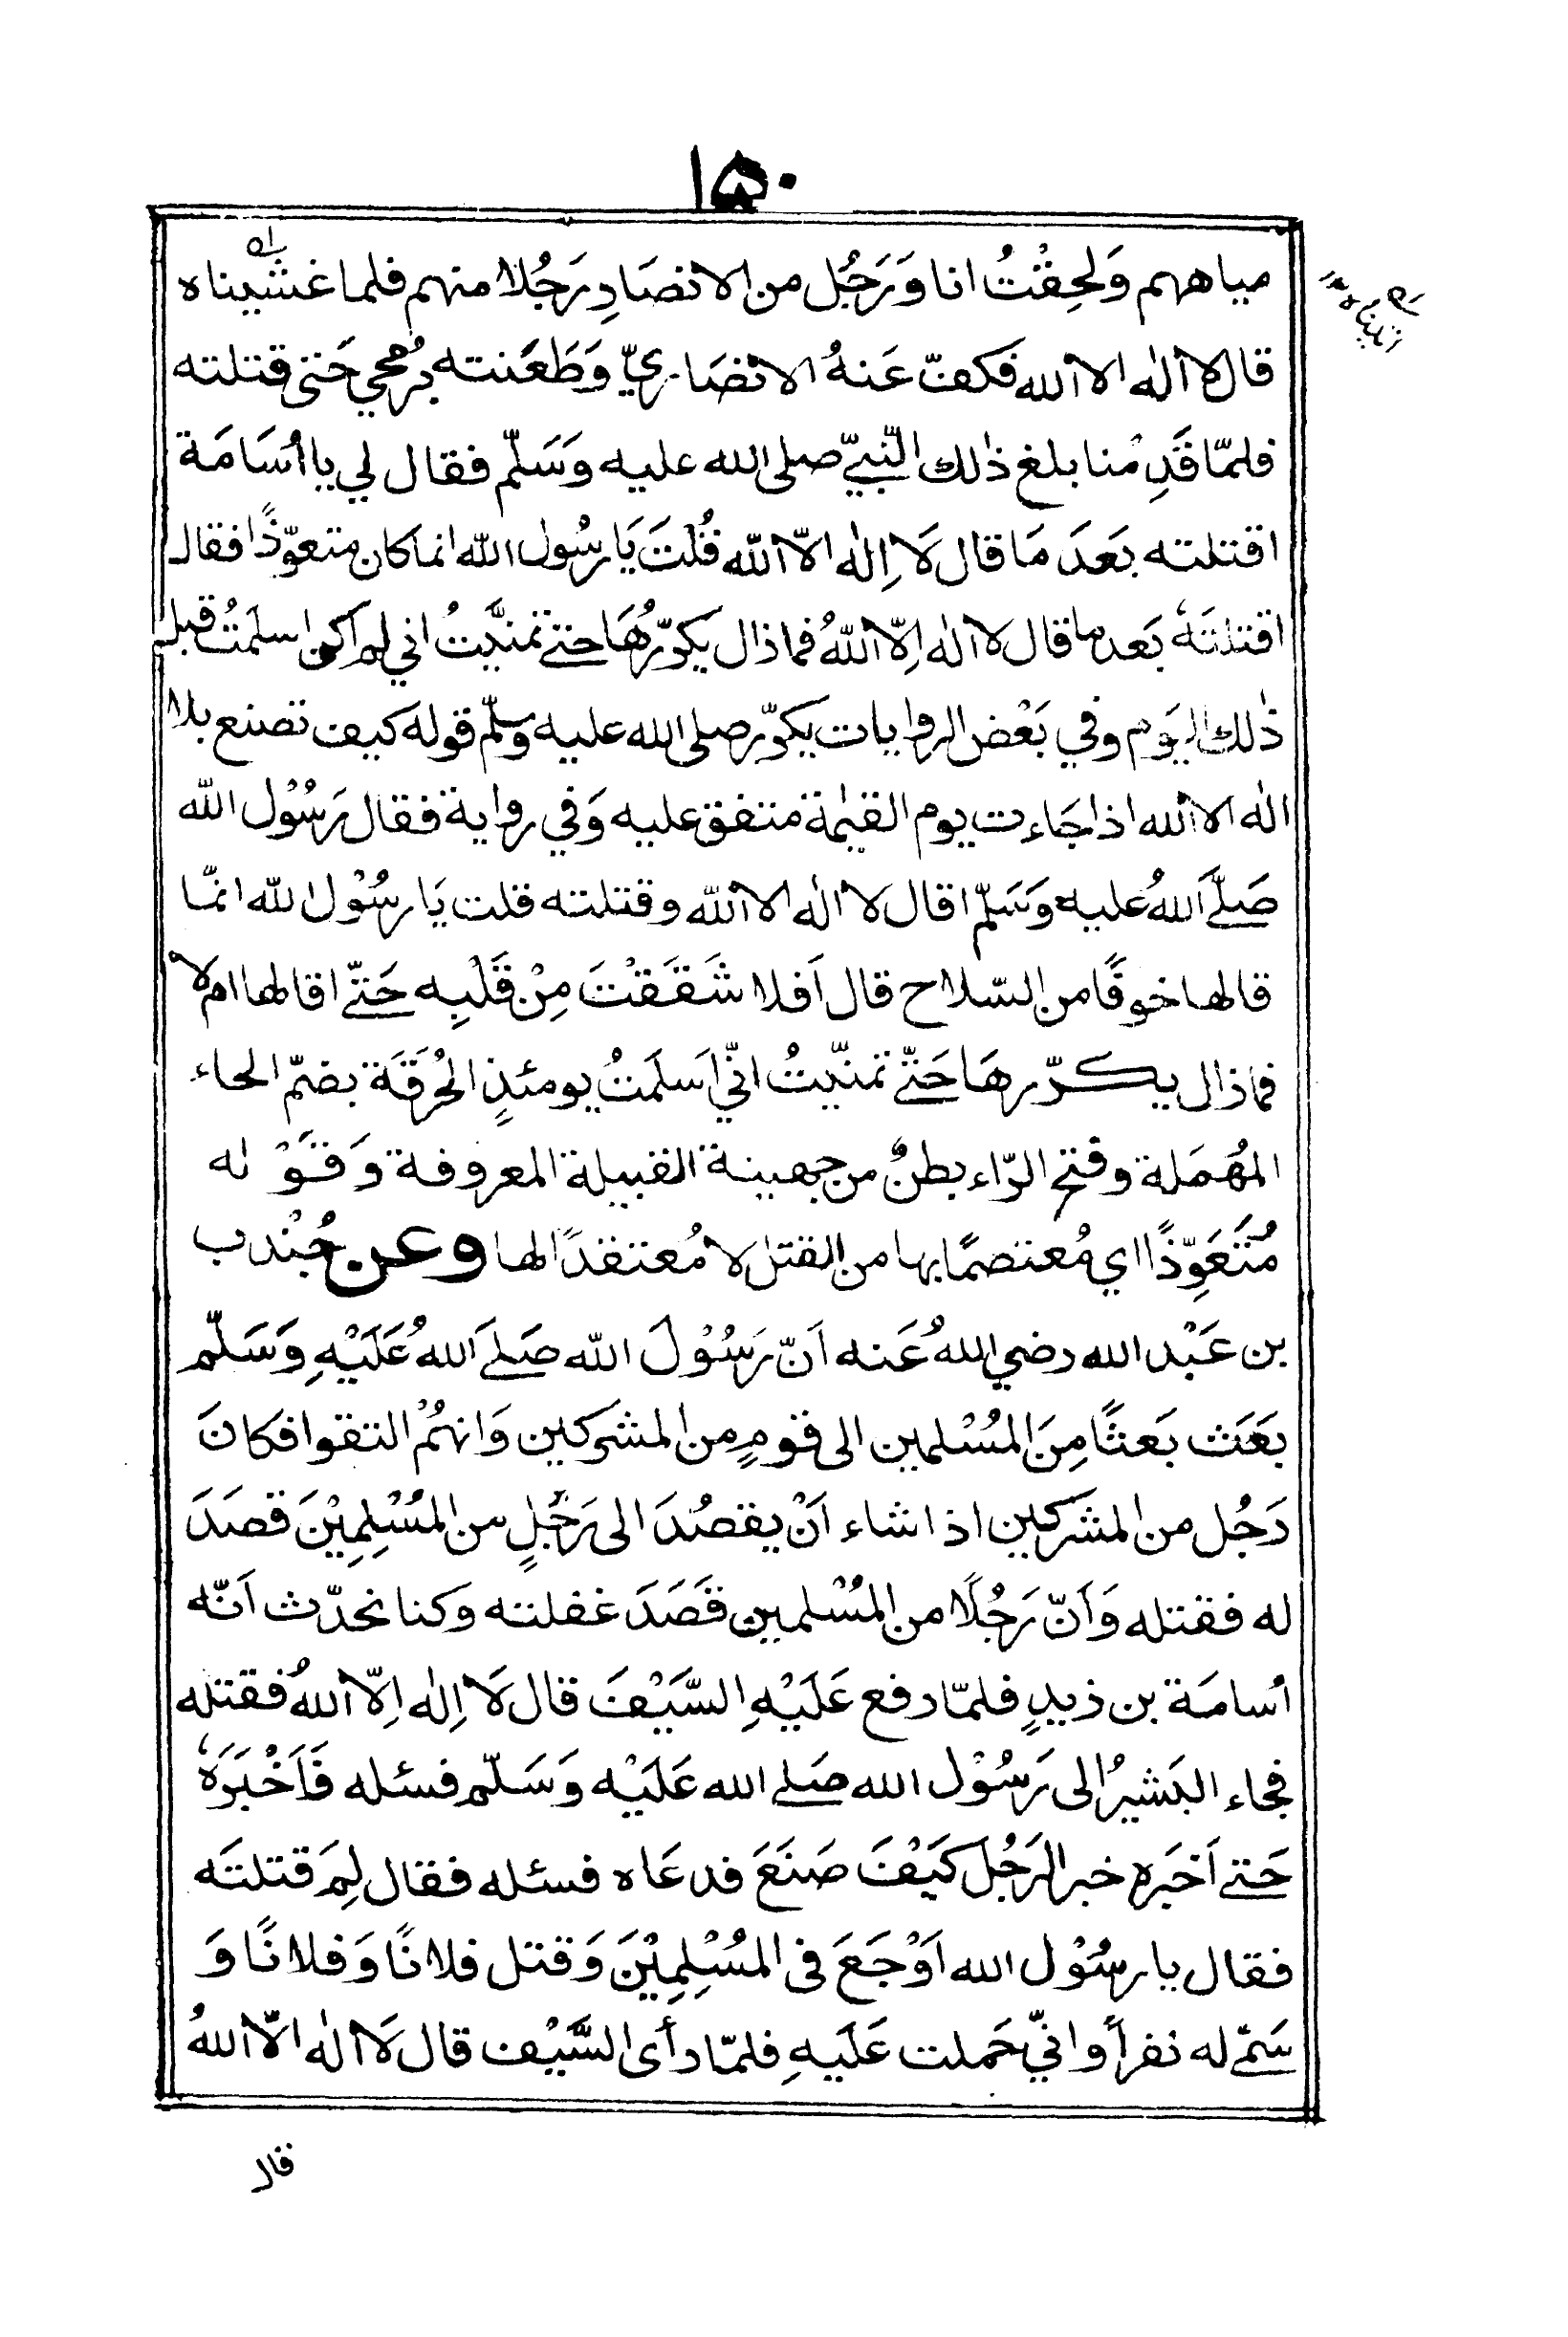 ١٥٠
مياههم وَلحِقْتُ انا وَرَجُل من الانصَارِ رَجُلا منهم فلما غشيناه
قال لا اله الا الله فكفّ عَنهُ الانصَاريّ وَطَعَنته برُمحي حَتى قتلته
فلمّا قَدِمْنا بلغ ذٰلك النّبيّ صلى الله عليه وَسَلّم فقال لي يا اُسَامَة
اقتلته بَعدَ مَا قال لَا اِلٰه الّا الله قُلْتَ يَا رسُول الله انما كان متعوّذًا فقال
اقتلتَهٗ بَعد ما قال لا اله اِلّا اللهُ فما ذال يكرّرُهَا حتے تمنيَّتُ اني لم اكن اسلمتُ قبل
ذٰلك اليَوم وفي بَعْض الروايات يكرّر صلى الله عليه وسلّم قوله كيف تصنع بلا
اله الا الله اذا جَاءت يوم القيٰمة متفق عليه وَفي رواية فقال رَسُوْل الله
صَلَّے اللهُ عليه وَسَلّم اقال لا اله الا الله وقتلته قلت يَا رسُوْل الله انمّا
قالها خوفًا من السّلاح قال اَفلا شَقَقْتَ مِنْ قَلْبِه حَتّے اقالها ام لا
فما ذال يكرّرهَا حَتّے تمنيّتُ انّي اَسلَمتُ يومئذٍ الحُرَقَة بضمّ الحاء
المُهمَلة وفتح الرّاء بطنٌ من جهينة القبيلة المعروفة وَقَوْله
مُتَعَوِّذًا اي مُعتصمًا بها من القتل لا مُعتقدًا لها وعن جُنْدب
بن عَبْد الله رضي اللهُ عَنه اَنّ رَسُوْلَ الله صَلےَ اللهُ عَلَيْهِ وَسَلّم
بعَث بَعثًا مِنَ المُسْلمين الى قومٍ من المشركين وَانهُمْ التقوا فكانَ
رَجُل من المشركين اذا شاء اَنْ يقصُدَ الى رَجُلٍ من المُسْلِمِيْنَ قصَدَ
له فقتله وَاَنّ رَجُلًا من المُسْلمين قَصَدَ غفلته وكنا نحدّث اَنّه
اُسامَة بن زيدٍ فلمّا رفع عَلَيْهِ السَّيْفَ قال لَا اِلٰه اِلّا اللهُ فقتله
فجاء البَشيرُ الى رَسُوْل الله صَلے الله عَلَيْه وَسَلّم فسئله فَاَخْبَرَهٗ
حَتے اَخبره خبر الرَجُل كَيْفَ صَنَعَ فدعَاه فسئله فقال لِمَ قتلتَه
فقال يا رسُوْل الله اَوْجَعَ فى المُسْلِمِيْنَ وَقتل فلانًا وَفلانًا وَ
سَمّے له نفرًا وانّي حَملت عَلَيهِ فلمّا رأى السَّيْف قال لَا اله الّا اللهُ
قال